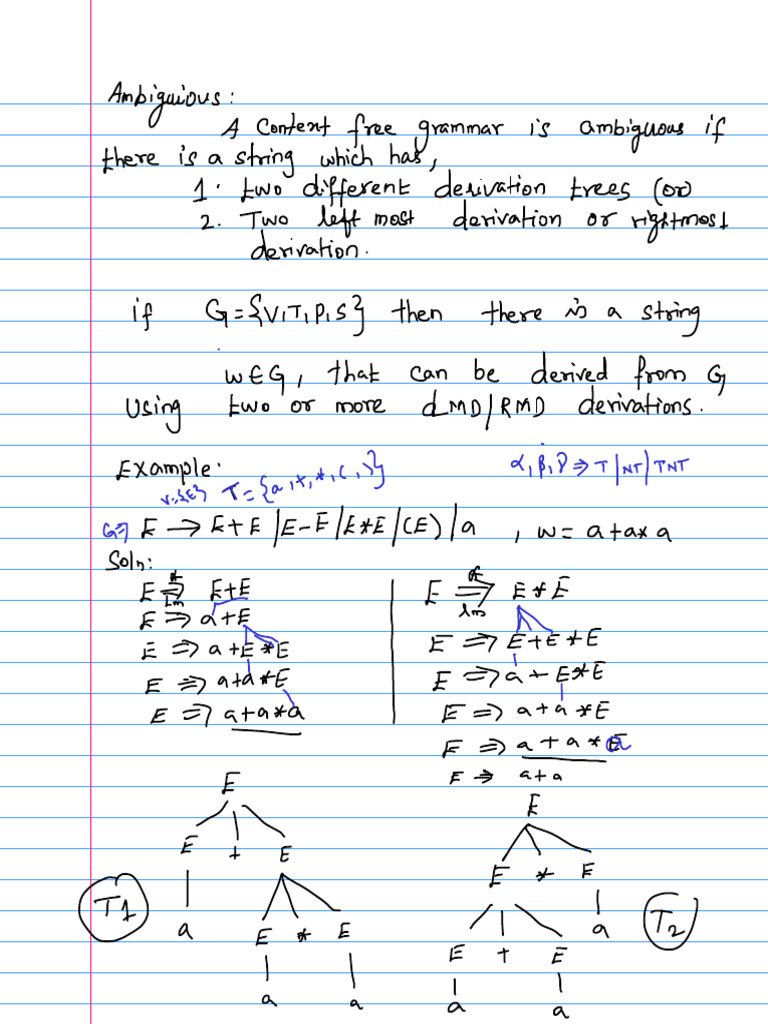 Ambiguious:
A context free grammar is ambiguous if
there is a string which has,
1. two different derivation trees (or)
2. Two left most derivation or rightmost
derivation.
if G={V,T,P,S} then there is a string
w∈G, that can be derived from G
Using two or more LMD/RMD derivations.
Example: α,β,γ ⇒ T/NT/TNT
V={E} T={a,+,*,(,)}
G⇒ E → E+E/E-E/E*E/(E)/a , w= a+a*a
Soln:
E *⇒lm E+E
E ⇒ a+E
E ⇒ a+E*E
E ⇒ a+a*E
E ⇒ a+a*a
E *⇒lm E*E
E ⇒ E+E*E
E ⇒ a+E*E
E ⇒ a+a*E
E ⇒ a+a*a
E ⇒ a+a
E
E + E
T1
a E * E
a a
E
E * E
E + E a T2
a a